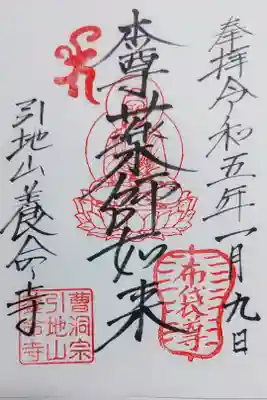 奉拝令和五年一月九日
本尊薬師如来
引地山養命寺
布袋尊
曹洞宗
引地山
養命寺